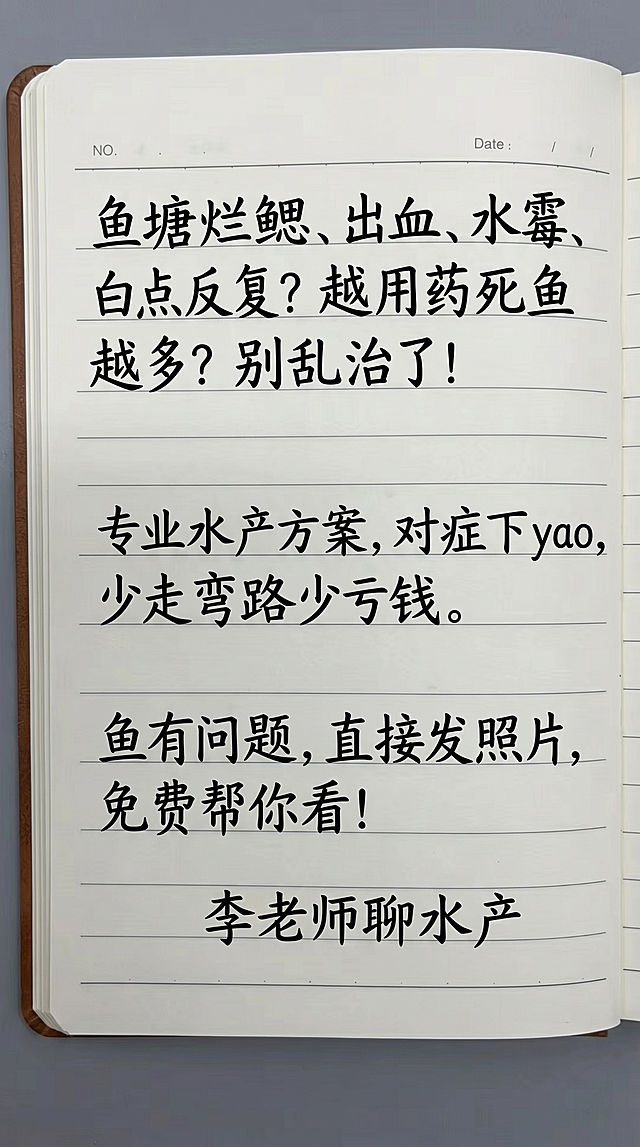 NO.
Date : / /
鱼塘烂鳃、出血、水霉、
白点反复？越用药死鱼
越多？别乱治了！
专业水产方案，对症下yao，
少走弯路少亏钱。
鱼有问题，直接发照片，
免费帮你看！
李老师聊水产